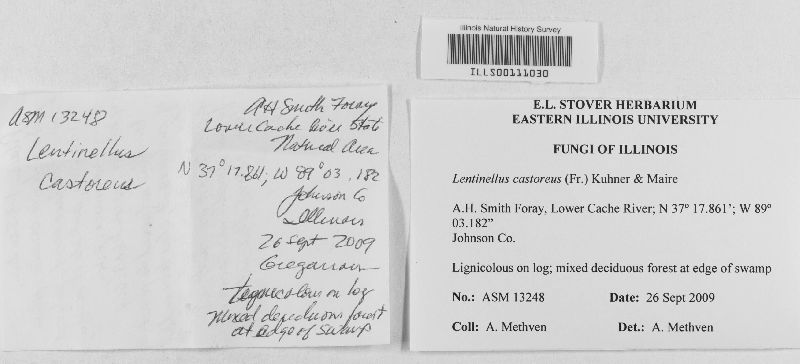 Illinois Natural History Survey
ILLS00111030
ASM 13248
Lentinellus
Castoreus
AH Smith Foray
Lower Cache River State
Natural Area
N 37° 17.861; W 89° 03.182
Johnson Co
Illinois
26 Sept 2009
Gregarious
Lignicolous on log
Mixed deciduous forest
at edge of swamp
E.L. STOVER HERBARIUM
EASTERN ILLINOIS UNIVERSITY
FUNGI OF ILLINOIS
Lentinellus castoreus (Fr.) Kuhner & Maire
A.H. Smith Foray, Lower Cache River; N 37° 17.861’; W 89°
03.182”
Johnson Co.
Lignicolous on log; mixed deciduous forest at edge of swamp
No.: ASM 13248 Date: 26 Sept 2009
Coll: A. Methven Det.: A. Methven